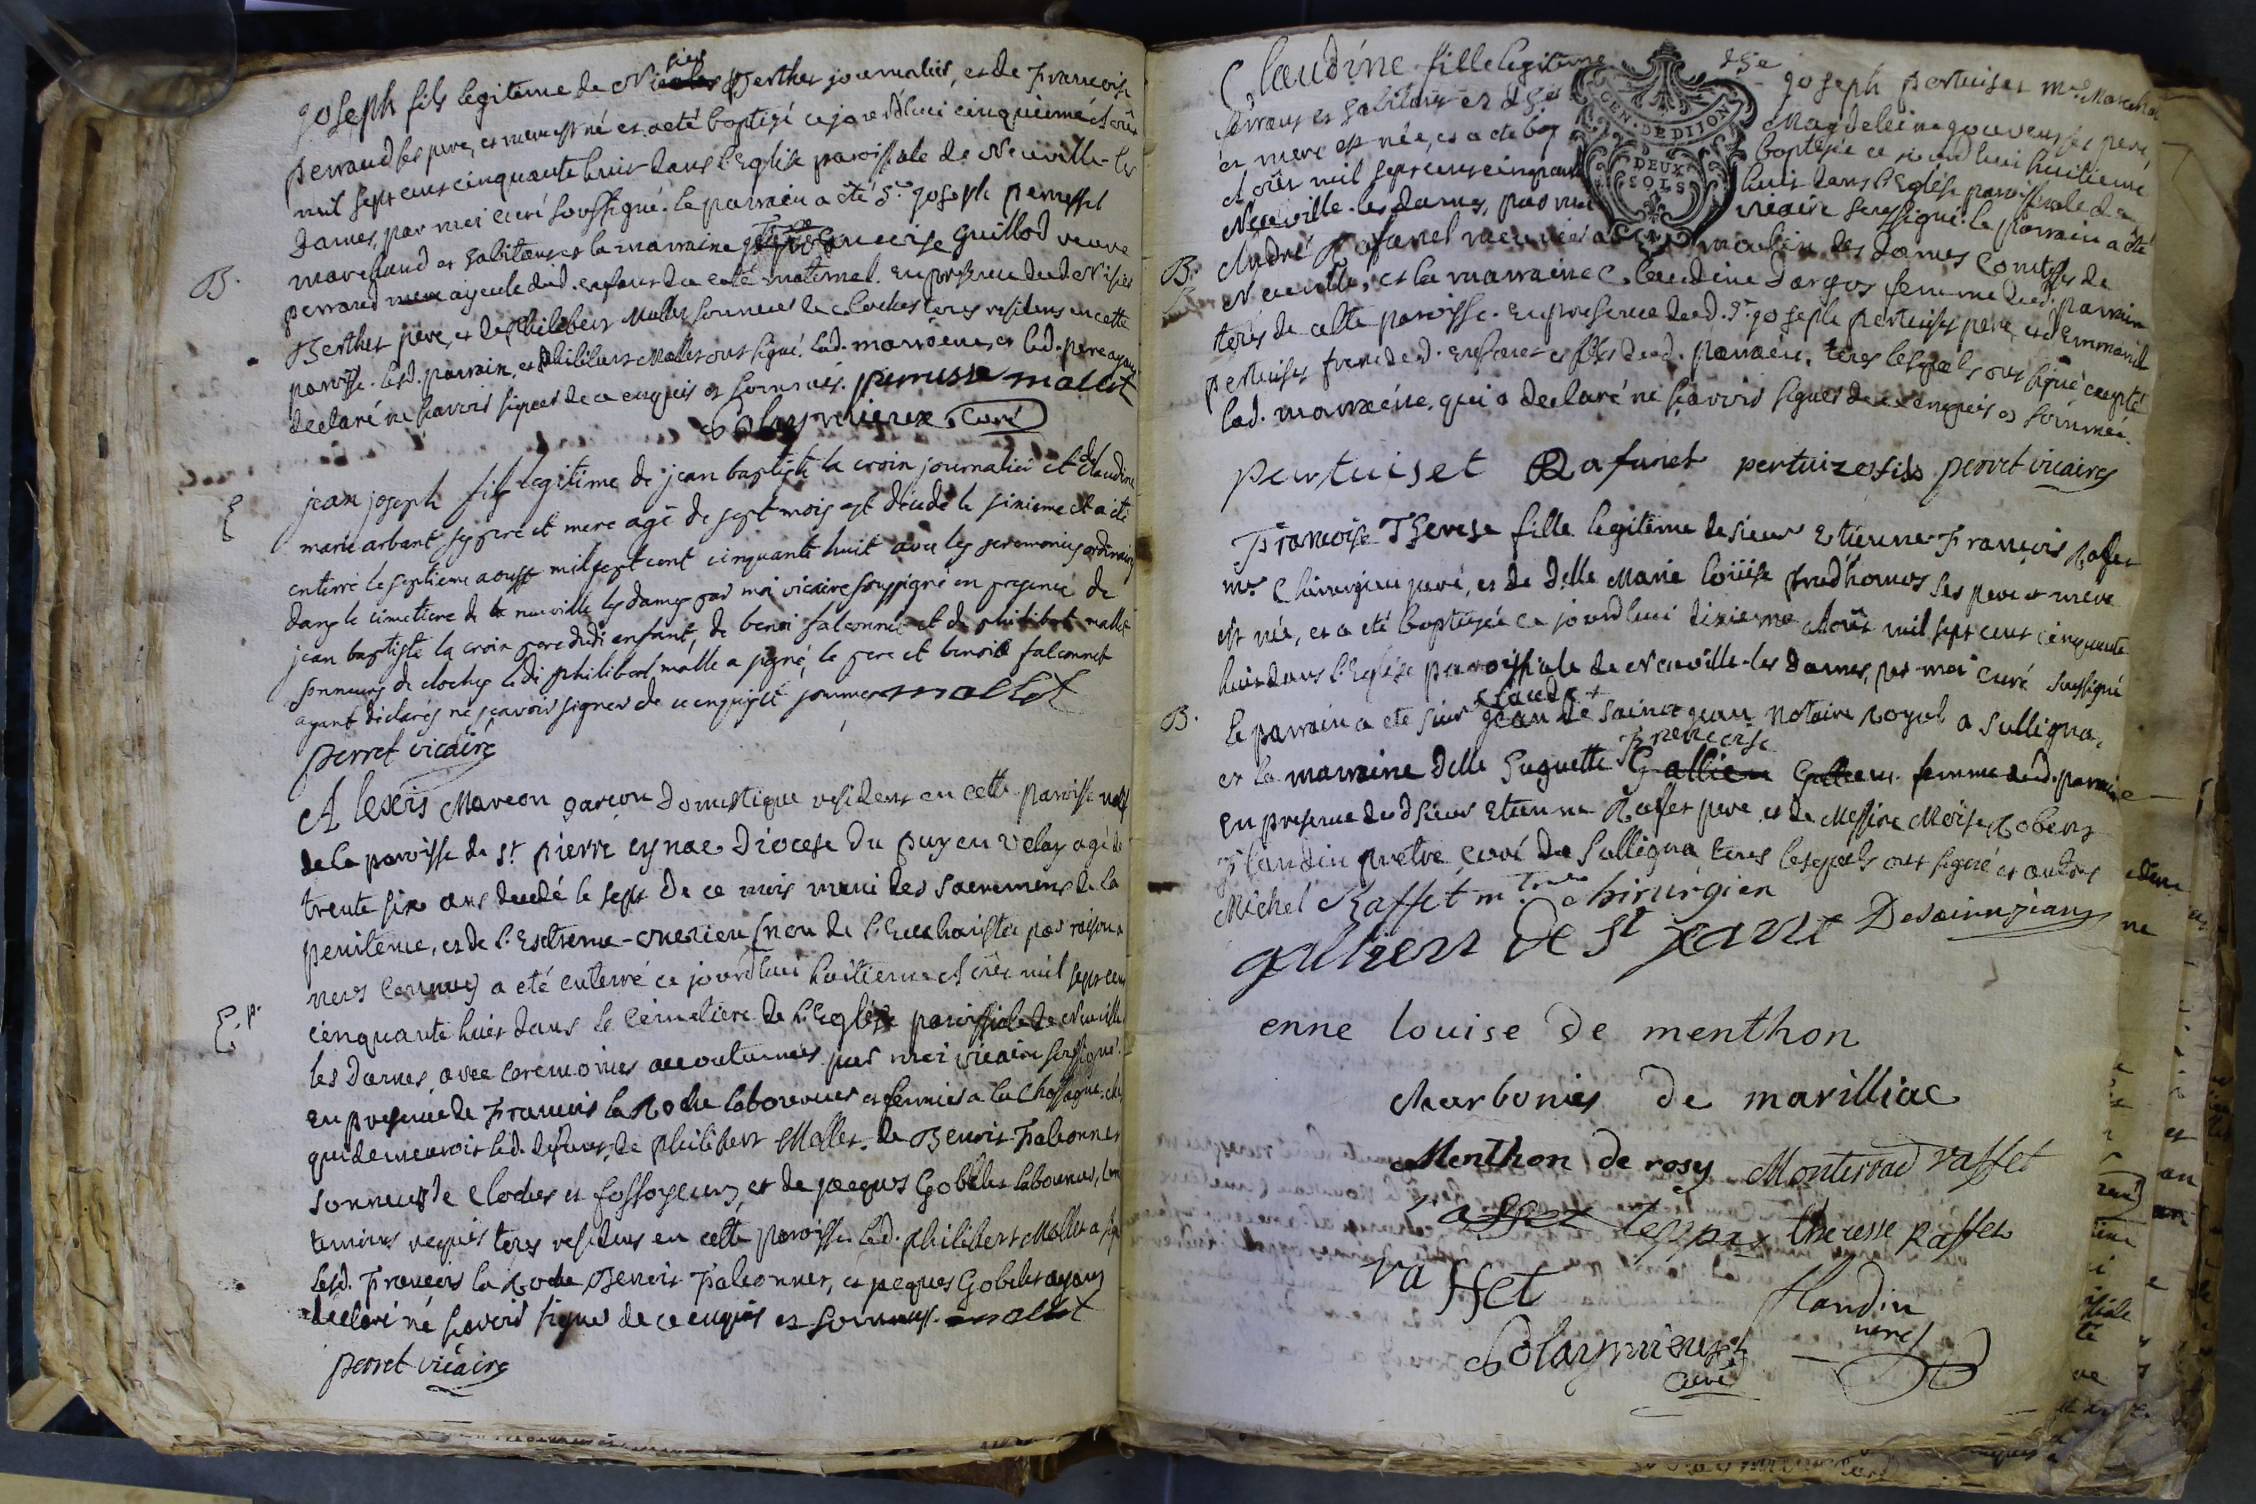 joseph fils legitime de Ni siers Berthet journalier, et de Françoise
perraud ses pere, et mere est né et a eté baptisé ce jourd'hui cinquieme Aoûst
mil sept cent cinquante huit dans l'Eglise paroissiale de Neuville-les
Dames, par moi curé soussigné. le parrain a été Sr. joseph perrussel
marchand et habitant et la marraine Françoise Guillod veuve
B.
perraud ayeule dud. enfant du coté maternel. En presence dud. Nisier
Berthet pere, et de philibert Mallet sonneur de cloches tous residens en cette
paroisse. led. parrain, et philibert Mallet ont signé. lad. marraine, et led. pere ayant
declaré ne scavoir signer de ce enquis et sommés. perrussel mallet
curé
E
jean joseph fils legitime de jean baptiste la croix journalier et de claudine
marie arbant ses pere et mere agé de sept mois est décédé le sixieme et a été
enterré le septieme aoust mil sept cent cinquante huit avec les ceremonies ordinaires
dans le cimetiere de neuville les dames par moi vicaire soussigné en presence de
jean baptiste la croix pere dudi enfant, de benoi falconnet et de philibert mallet
sonneurs de cloches ledi philibert mallet a signé, le pere et benoit falconnet
ayant déclarés ne scavoir signer de ce enquis et sommés mallet
perret vicaire
Alexis Marcon garçon domestique resident en cette paroisse natif
de la paroisse de st pierre eynac Diocese Du puy en velay agé de
trente six ans decedé le sept de ce mois muni des sacremens de la
penitence, et de l'Extreme-onction (non de l'Eucharistie par raisons a
nous connues) a eté enterré ce jourd'hui huitieme Aoûst mil sept cent
E. p.
cinquante huit dans le cimetiere de l'Eglise paroissiale de Neuville
les Dames, avec ceremonies accoutumées par moi vicaire soussigné.
En presence de François la Roche laboureur et fermier a la Chassagne chez
qui demeuroit led. defunt, de philibert Mallet, de Benoit Falconnet
sonneurs de cloches et fossoyeurs, et de jacques Gobelet laboureur,
temoins requis tous residens en cette paroisse. led. philibert Mallet a signé
lesd. François la Roche, Benoit Falconnet, et jacques Gobelet ayant
declaré ne scavoir signer de ce enquis et sommés. mallet
perret vicaire
Claudine fille legitime de Sr joseph pertuiset me. Marechal
GEN. DE DIJON
DEUX SOLS
ferrant et habitant et de Magdeleine gouvenet ses pere,
et mere est née, et a eté baptisée ce jourd'hui huitieme
Aoûst mil sept cent cinquante huit dans l'Eglise paroissiale de
Neuville-les Dames, par moi vicaire soussigné. le parrain a été
B.
André Rafanel meunier au moulin des Dames Comtesses de
Neuville, et la marraine Claudine Dargos femme dud. parrain
tous de cette paroisse. En presence dud. Sr. joseph pertuiset pere, et d'Emmanuel
pertuiset frere de d. enfant et fils dud. parrain. tous lesquels ont signé excepté
lad. marraine, qui a declaré ne scavoir signer de ce enquis et sommée.
pertuiset Rafanet pertuizet fils perret vicaire
Françoise Therese fille legitime de sieur Etienne-François Raffet
me Chirurgien juré, et de Delle Marie Loüise prudhomes ses pere et mere
est née, et a eté baptisée ce jourd'hui dixieme Aoûst mil sept cent cinquante
huit dans l'Eglise paroissiale de Neuville-les Dames, par moi curé soussigné
B.
le parrain a eté sieur claude de Saint jean Notaire Royal a Sulligna,
et la marraine Delle Huguette Françoise femme dud. parrain
En presence dud sieur Etienne Raffet pere, et de Messire Moise Robert
flandin prêtre curé de Sulligna tous lesquels ont signé et autres
Michel Raffet m. chirurgien
galhien de st jean Desaintjean
enne louise de menthon
charbonier de marilliac
Menthon de rosy Monterrad raffet
raffet therese Raffet
raffet
flandin
curé